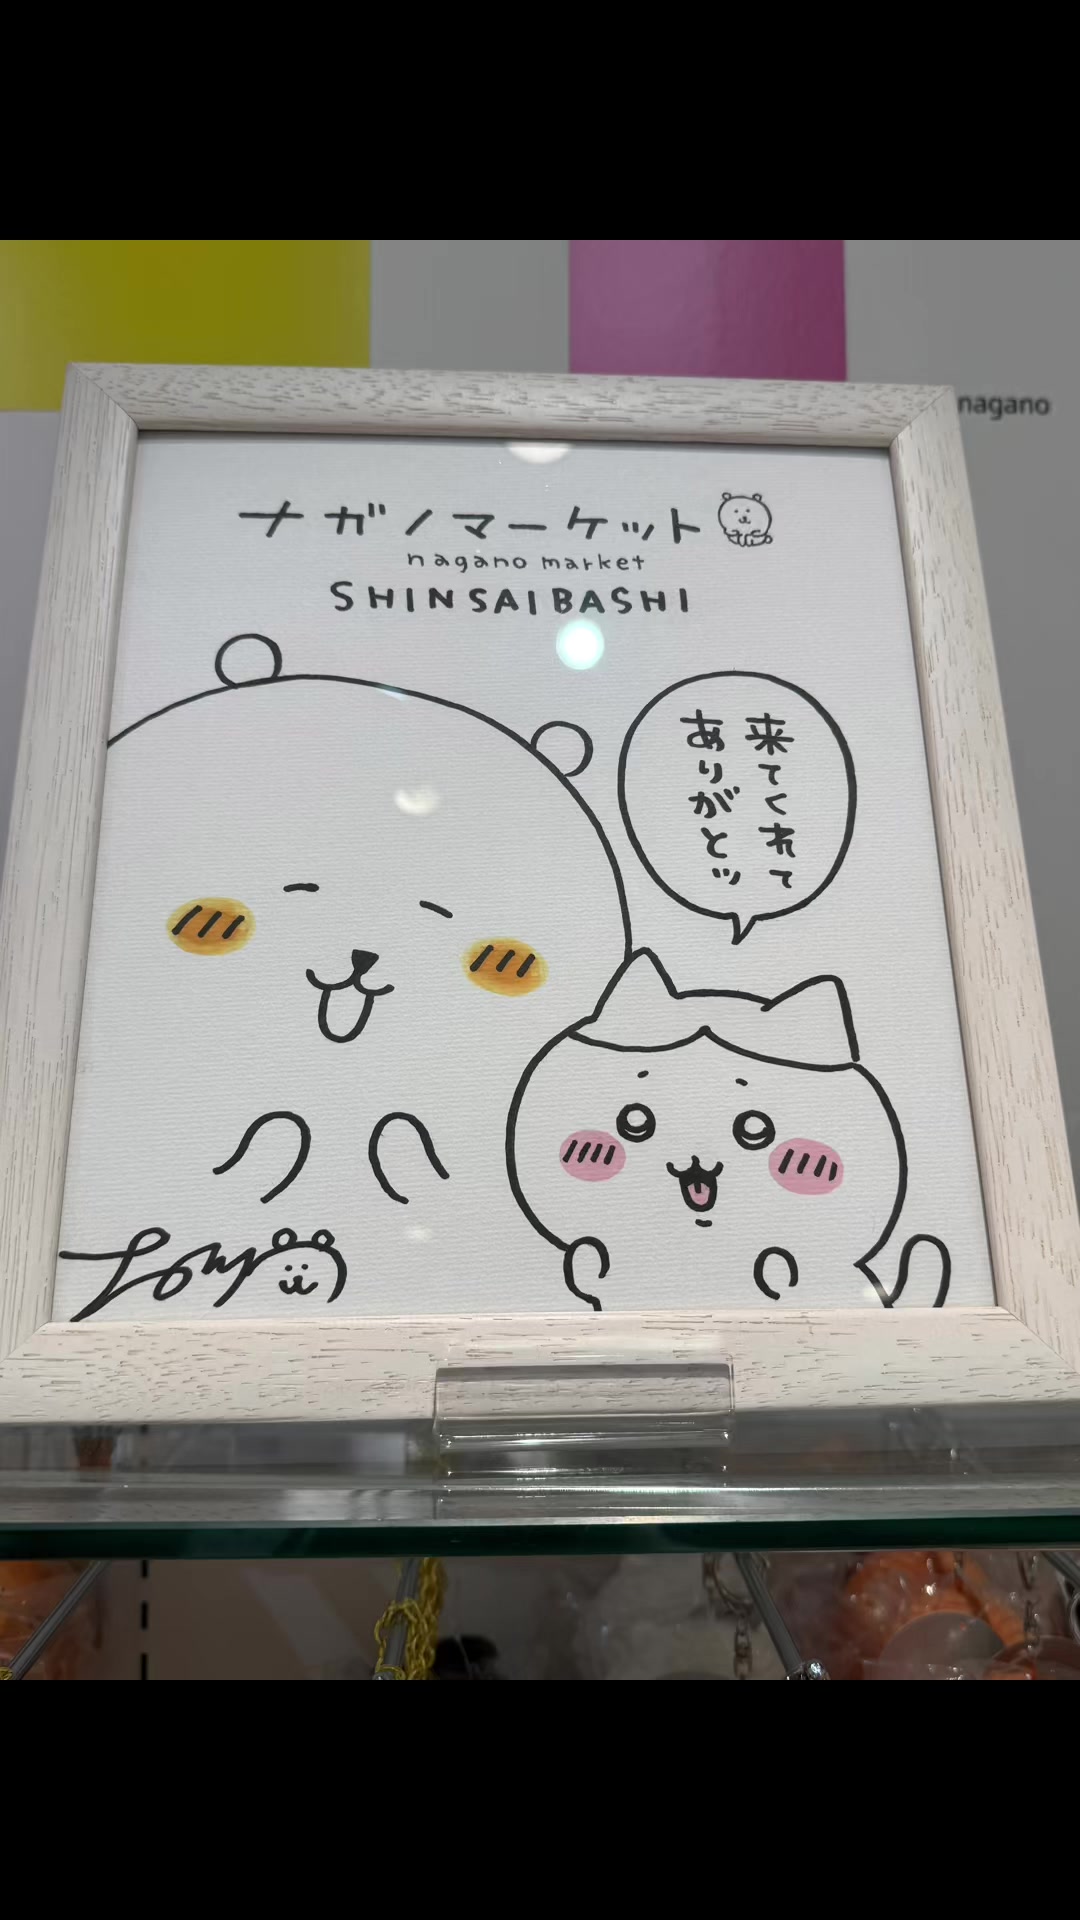 nagano
ナガノマーケット
nagano market
SHINSAIBASHI
来てくれて
ありがとッ